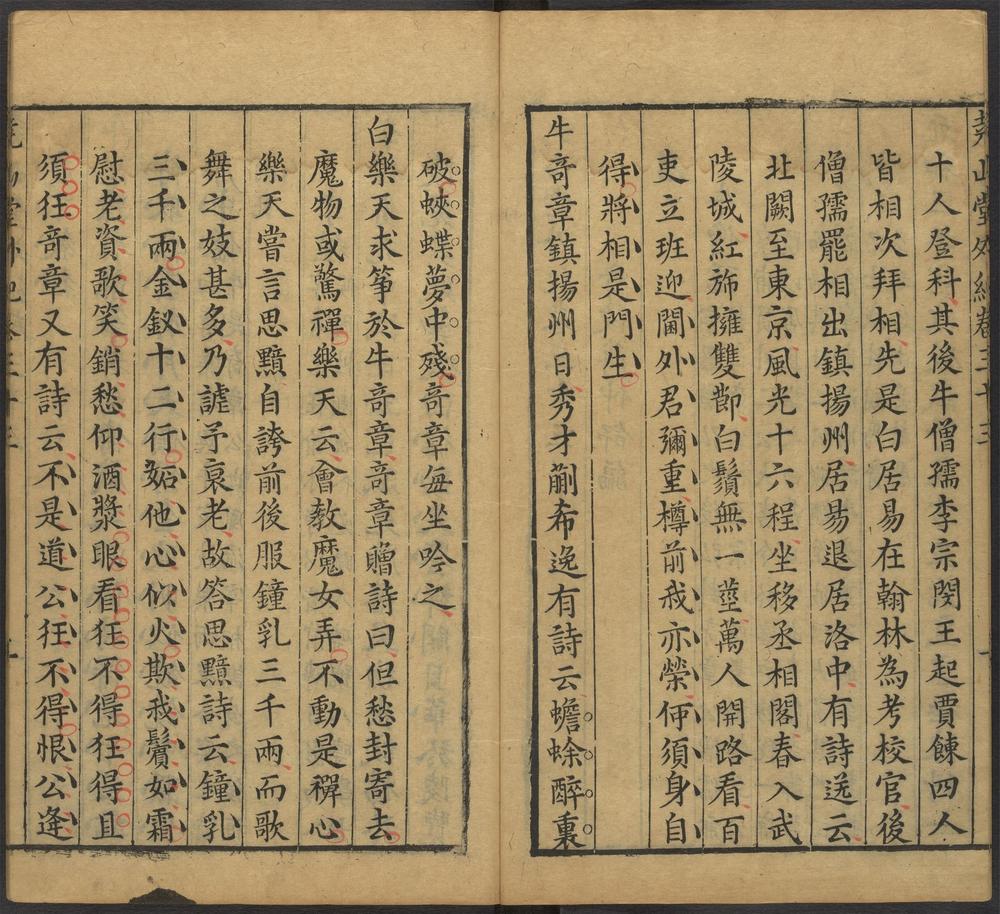 堯山堂外紀卷三十三
十人登科其後牛僧孺李宗閔王起賈餗四人
皆相次拜相先是白居易在翰林為考校官後
僧孺罷相出鎮揚州居易退居洛中有詩送云
北闕至東京風光十六程坐移丞相閣春入武
陵城紅斾擁雙節白鬚無一莖萬人開路看百
吏立班迎閫外君彌重樽前我亦榮何須身自
得將相是門生
牛竒章鎮揚州日秀才蒯希逸有詩云蟾蜍醉裏
破蛺蝶夢中殘竒章每坐吟之
白樂天求箏於牛竒章竒章贈詩曰但愁封寄去
魔物或驚禪樂天云會教魔女弄不動是禪心
樂天嘗言思黯自誇前後服鐘乳三千兩而歌
舞之妓甚多乃謔予衰老故答思黯詩云鐘乳
三千兩金釵十二行妬他心似火欺我鬢如霜
慰老資歌笑銷愁仰酒漿眼看狂不得狂得且
須狂竒章又有詩云不是道公狂不得恨公逢